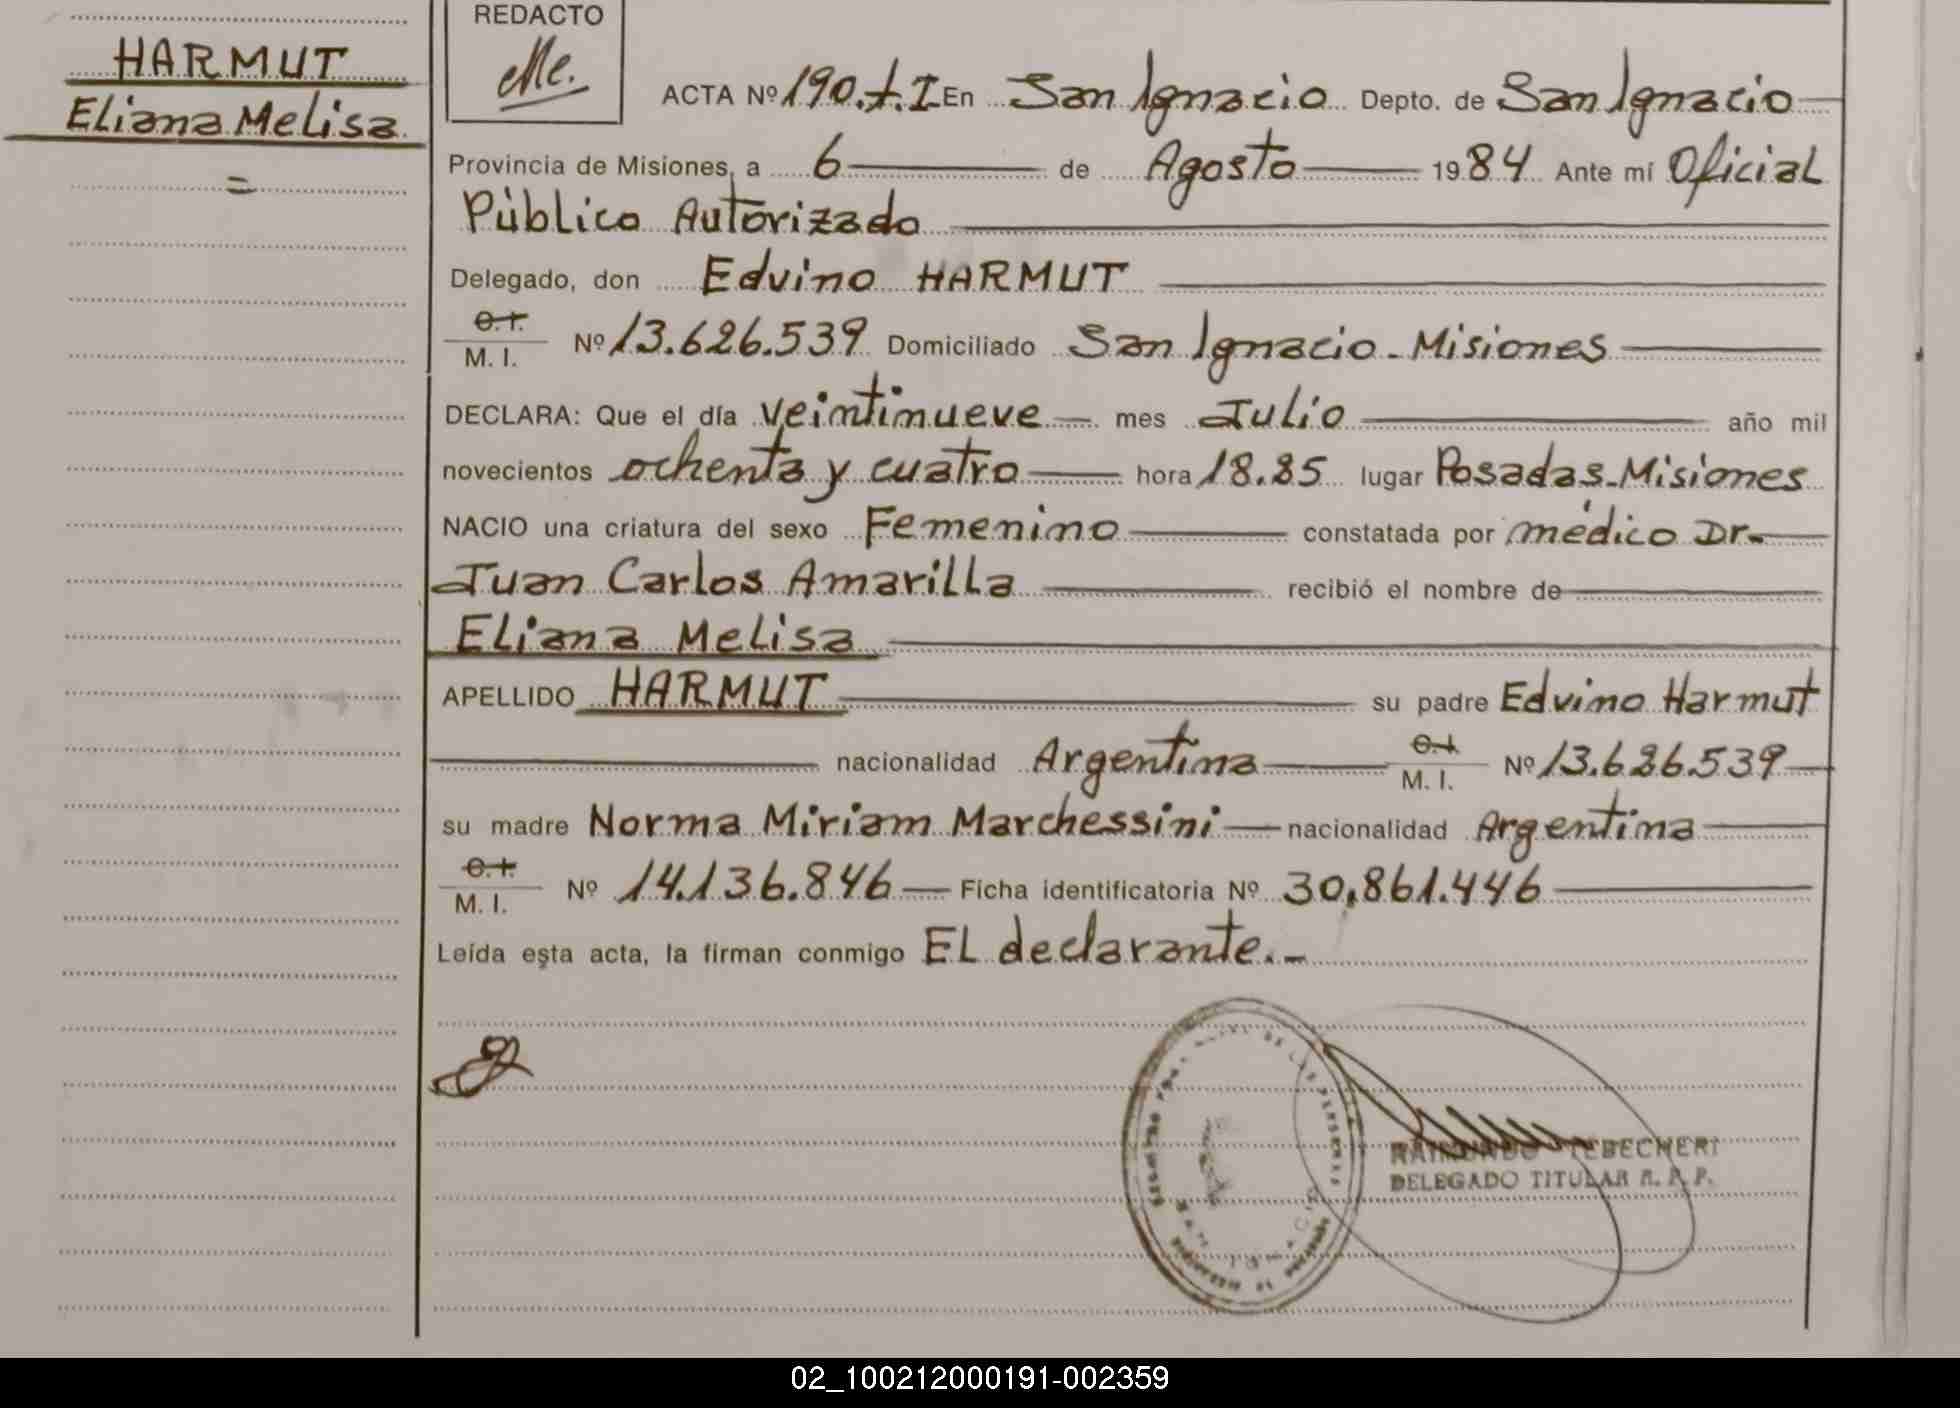 HARMUT
Eliana Melisa
=
REDACTO
ACTA Nº 190.t.I En San Ignacio Depto. de San Ignacio
Provincia de Misiones, a 6 de Agosto 1984 Ante mí Oficial
Público Autorizado
Delegado, don Edvino HARMUT
C.I.
M. I. Nº 13.626.539 Domiciliado San Ignacio - Misiones
DECLARA: Que el día veintinueve mes Julio año mil
novecientos ochenta y cuatro hora 18.25 lugar Posadas-Misiones
NACIO una criatura del sexo Femenino constatada por médico Dr.
Juan Carlos Amarilla recibió el nombre de
Eliana Melisa
APELLIDO HARMUT su padre Edvino Harmut
nacionalidad Argentina C.I. M. I. Nº 13.626.539
su madre Norma Miriam Marchessini nacionalidad Argentina
C.I.
M. I. Nº 14.136.846 Ficha identificatoria Nº 30,861.446
Leída esta acta, la firman conmigo EL declarante.-
RAIMUNDO TEBECHERI
DELEGADO TITULAR R. P. P.
02_100212000191-002359